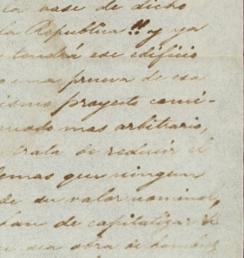 la base de dicho
la Republica!! y ya
tendrá ese edificio
una prueva de esa
mismo proyecto comi-
mas arbitrario,
trata de reducir el
demas que ningun
de su valor nominal,
plan de capitalizar
sea obra de